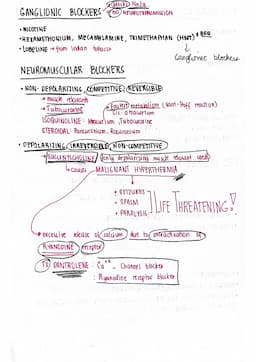 GANGLIONIC BLOCKERS
NO NEUROTRANSMISSION
• NICOTINE
• HEXAMETHONIUM, MECAMYLAMINE, TRIMETHAPHAN (HMT)
Ganglionic blockers
• LOBELINE → from Indian tobacco
NEUROMUSCULAR BLOCKERS
• NON-DEPOLARIZING, COMPETITIVE, REVERSIBLE
→ muscle relaxants
→ Tubocurarine
→ fastest metabolism (Hoffman reaction)
Cis-atracurium
ISOQUINOLINE: Mivacurium, Tubocurarine
STEROIDAL: Pancuronium, Rocuronium
• DEPOLARIZING, IRREVERSIBLE, NON-COMPETITIVE
→ SUCCINYLCHOLINE (only depolarizing muscle relaxant used)
→ causes MALIGNANT HYPERTHERMIA
• SEIZURES
• SPASM
• PARALYSIS
LIFE THREATENING!
• excessive release of calcium due to overactivation of
RYANODINE receptor
Tx: DANTROLENE: Ca++ - Channel blocker
: Ryanodine receptor blocker